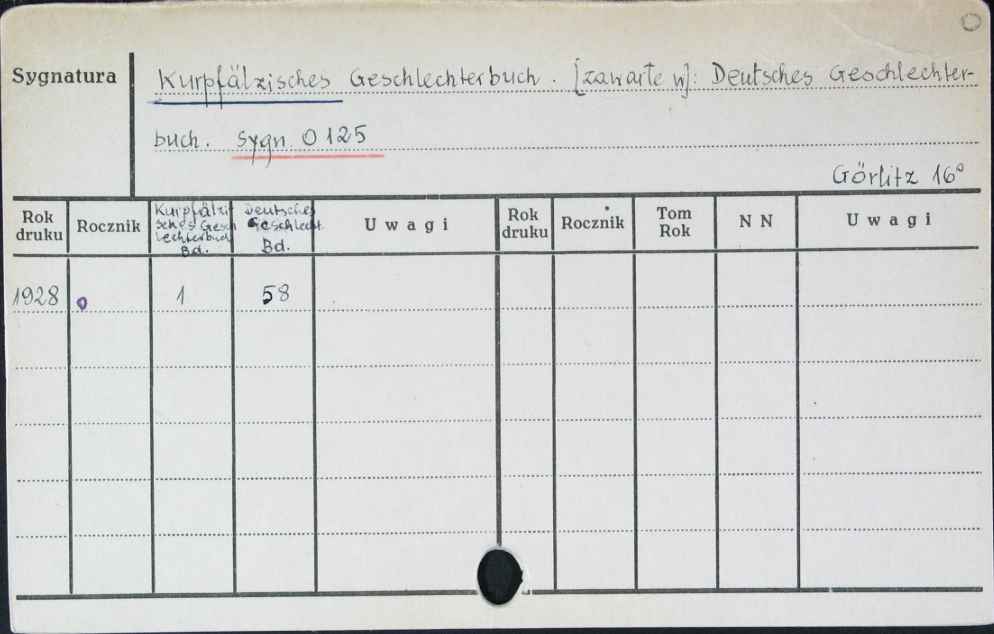 Sygnatura
Kurpfälzisches Geschlechterbuch. [zawarte w]: Deutsches Geschlechter-
buch. sygn. O 125
Görlitz 16°
Rok druku Rocznik Kurpfälzisches Geschlechterbuch Bd. Deutsches Geschlecht. Bd. Uwagi Rok druku Rocznik Tom Rok NN Uwagi
1928 1 58